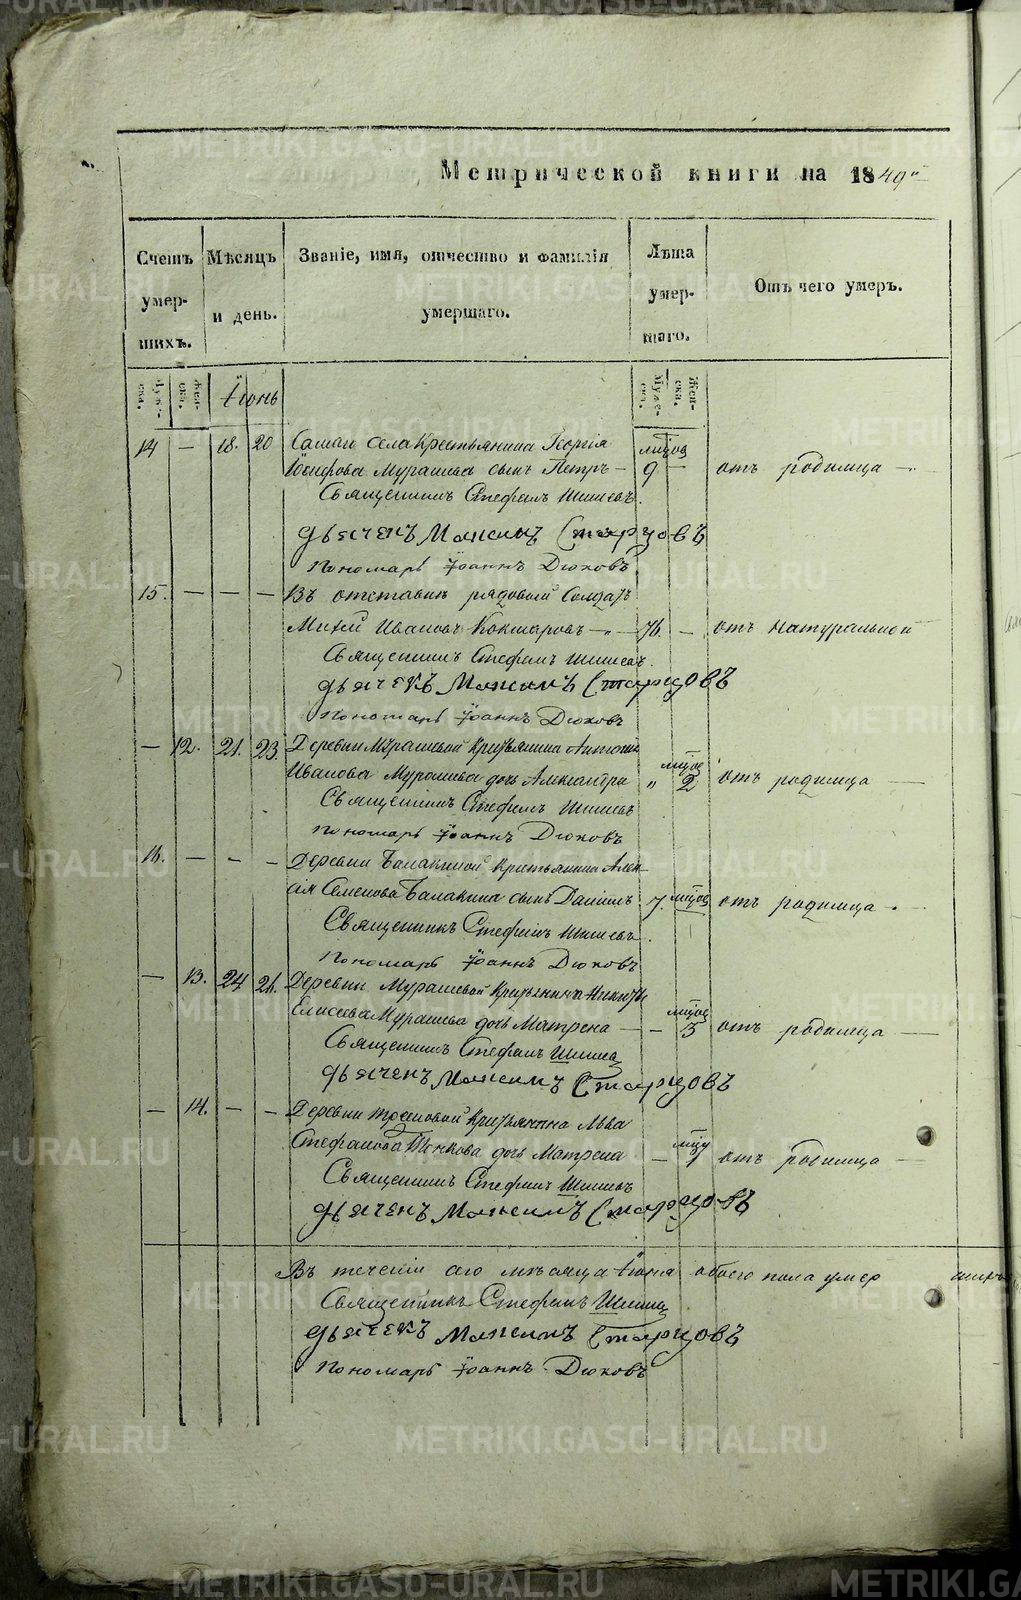 METRIKI.GASO-URAL.RU
Метрической книги на 1849й
Счетъ умер- шихъ.
Мѣсяцъ и день.
Званіе, имя, отчество и фамилія умершаго.
Лѣта умер- шаго.
Отъ чего умеръ.
Муже- ска.
Жен- ска.
Іюнь
Муже- ска.
Жен- ска.
14 — 18. 20 Самаго села Крестьянина Георгія
Іосифова Мурашева сынъ Петръ — 9 — отъ родимца —
Священникъ Стефанъ Шишевъ
Дьячекъ Максимъ Старцовъ
Пономарь Іоаннъ Дюковъ
15. — — — Въ отставкѣ рядовой Солдатъ
Иванов Кокшаровъ — 76. — отъ натуральной
Священникъ Стефанъ Шишевъ
Дьячекъ Максимъ Старцовъ
Пономарь Іоаннъ Дюковъ
— 12. 21. 23. Деревни Мурашевой Крестьянина
Иванова Мурашева дочь Александра „ 2 отъ родимца —
Священникъ Стефанъ Шишевъ
Пономарь Іоаннъ Дюковъ
16. — — — Деревни Балакиной Крестьянина Алек-
Семенова Балакина сынъ Даніилъ 7. отъ родимца —
Священникъ Стефанъ Шишевъ
Пономарь Іоаннъ Дюковъ
— 13. 24 26. Деревни Мурашевой Крестьянина Никиты
Елисеева Мурашева дочь Матрена — — 5 отъ родимца —
Священникъ Стефанъ Шишев
Дьячекъ Максимъ Старцовъ
— 14. — — Деревни Крестьянина Льва
Стефанова дочь Матрена — 1 отъ родимца —
Священникъ Стефанъ Шишевъ
Дьячекъ Максимъ Старцовъ
Въ теченіи сего мѣсяца Іюня обоего пола умер
Священникъ Стефанъ Шишев
Дьячекъ Максимъ Старцовъ
Пономарь Іоаннъ Дюковъ